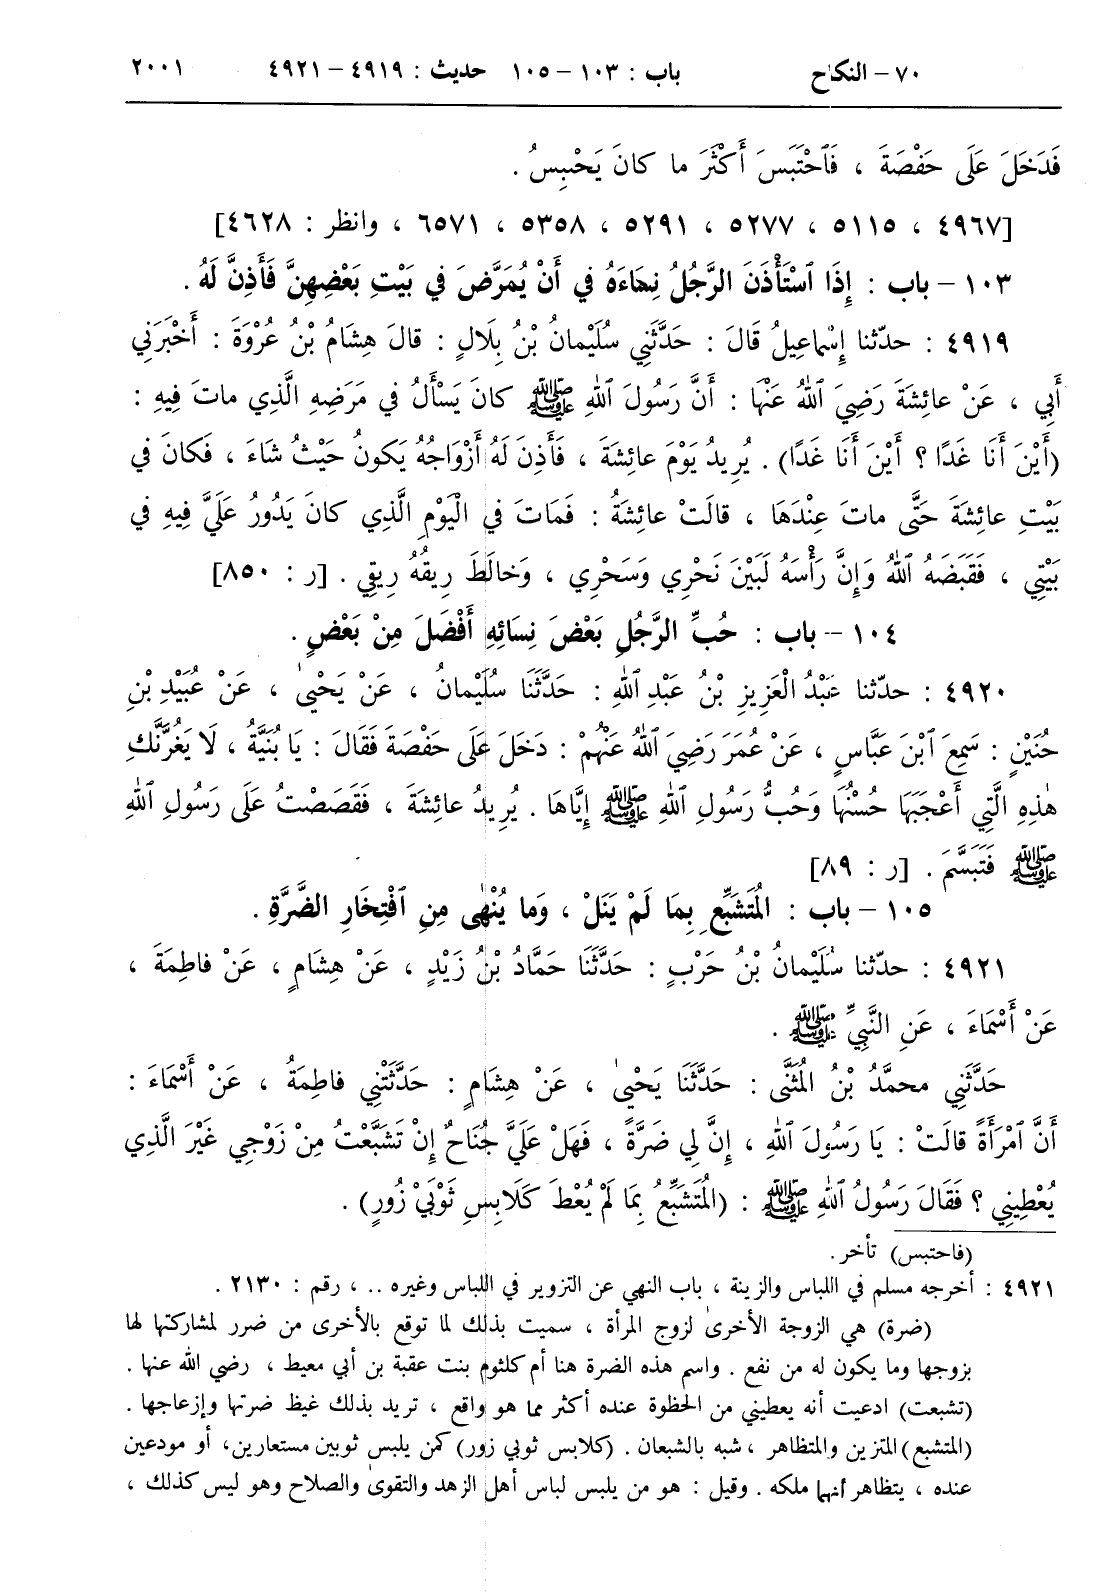 ٧٠ – النكاح باب : ١٠٣ – ١٠٥ حديث : ٤٩١٩ – ٤٩٢١ ٢٠٠١
فَدَخَلَ عَلَى حَفْصَةَ ، فَٱحْتَبَسَ أَكْثَرَ ما كانَ يَحْبِسُ .
[٤٩٦٧ ، ٥١١٥ ، ٥٢٧٧ ، ٥٢٩١ ، ٥٣٥٨ ، ٦٥٧١ ، وانظر : ٤٦٢٨]
١٠٣ – باب : إِذَا ٱسْتَأْذَنَ الرَّجُلُ نِسَاءَهُ في أَنْ يُمَرَّضَ في بَيْتِ بَعْضِهِنَّ فَأَذِنَّ لَهُ .
٤٩١٩ : حدّثنا إِسْماعِيلُ قَالَ : حَدَّثَنِي سُلَيْمانُ بْنُ بِلَالٍ : قالَ هِشَامُ بْنُ عُرْوَةَ : أَخْبَرَنِي
أَبِي ، عَنْ عائِشَةَ رَضِيَ ٱللهُ عَنْهَا : أَنَّ رَسُولَ ٱللهِ ﷺ كانَ يَسْأَلُ في مَرَضِهِ الَّذِي ماتَ فِيهِ :
(أَيْنَ أَنَا غَدًا ؟ أَيْنَ أَنَا غَدًا) . يُرِيدُ يَوْمَ عائِشَةَ ، فَأَذِنَ لَهُ أَزْوَاجُهُ يَكونُ حَيْثُ شاءَ ، فَكانَ في
بَيْتِ عائِشَةَ حَتَّى ماتَ عِنْدَهَا ، قالَتْ عائِشَةُ : فَمَاتَ في الْيَوْمِ الَّذِي كانَ يَدُورُ عَلَيَّ فِيهِ في
بَيْتِي ، فَقَبَضَهُ ٱللهُ وَإِنَّ رَأْسَهُ لَبَيْنَ نَحْرِي وَسَحْرِي ، وَخالَطَ رِيقُهُ رِيقِي . [ر : ٨٥٠]
١٠٤ – باب : حُبِّ الرَّجُلِ بَعْضَ نِسَائِهِ أَفْضَلَ مِنْ بَعْضٍ .
٤٩٢٠ : حدّثنا عَبْدُ الْعَزِيزِ بْنُ عَبْدِ ٱللهِ : حَدَّثَنَا سُلَيْمانُ ، عَنْ يَحْيىٰ ، عَنْ عُبَيْدِ بْنِ
حُنَيْنٍ : سَمِعَ ٱبْنَ عَبَّاسٍ ، عَنْ عُمَرَ رَضِيَ ٱللهُ عَنْهُمْ : دَخَلَ عَلَى حَفْصَةَ فَقَالَ : يَا بُنَيَّةُ ، لَا يَغُرَّنَّكِ
هٰذِهِ الَّتِي أَعْجَبَهَا حُسْنُهَا وَحُبُّ رَسُولِ ٱللهِ ﷺ إِيَّاهَا . يُرِيدُ عائِشَةَ ، فَقَصَصْتُ عَلَى رَسُولِ ٱللهِ
ﷺ فَتَبَسَّمَ . [ر : ٨٩]
١٠٥ – باب : المُتَشَبِّعِ بِمَا لَمْ يَنَلْ ، وَما يُنْهٰى مِنِ ٱفْتِخَارِ الضَّرَّةِ .
٤٩٢١ : حدّثنا سُلَيْمانُ بْنُ حَرْبٍ : حَدَّثَنَا حَمَّادُ بْنُ زَيْدٍ ، عَنْ هِشَامٍ ، عَنْ فاطِمَةَ ،
عَنْ أَسْمَاءَ ، عَنِ النَّبِيِّ ﷺ .
حَدَّثَنِي محمَّدُ بْنُ المُثَنَّى : حَدَّثَنَا يَحْيىٰ ، عَنْ هِشَامٍ : حَدَّثَتْنِي فاطِمَةُ ، عَنْ أَسْمَاءَ :
أَنَّ ٱمْرَأَةً قالَتْ : يَا رَسُولَ ٱللهِ ، إِنَّ لِي ضَرَّةً ، فَهَلْ عَلَيَّ جُنَاحٌ إِنْ تَشَبَّعْتُ مِنْ زَوْجِي غَيْرَ الَّذِي
يُعْطِينِي ؟ فَقَالَ رَسُولُ ٱللهِ ﷺ : (المُتَشَبِّعُ بِمَا لَمْ يُعْطَ كَلَابِسِ ثَوْبَيْ زُورٍ) .
(فاحتبس) تأخر .
٤٩٢١ : أخرجه مسلم في اللباس والزينة ، باب النهي عن التزوير في اللباس وغيره .. ، رقم : ٢١٣٠ .
(ضرة) هي الزوجة الأخرىٰ لزوج المرأة ، سميت بذلك لما توقع بالأخرى من ضرر لمشاركتها لها
بزوجها وما يكون له من نفع . واسم هذه الضرة هنا أم كلثوم بنت عقبة بن أبي معيط ، رضي الله عنها .
(تشبعت) ادعيت أنه يعطيني من الحظوة عنده أكثر مما هو واقع ، تريد بذلك غيظ ضرتها وإزعاجها .
(المتشبع) المتزين والمتظاهر ، شبه بالشبعان . (كلابس ثوبي زور) كمن يلبس ثوبين مستعارين، أو مودعين
عنده ، يتظاهر أنهما ملكه . وقيل : هو من يلبس لباس أهل الزهد والتقوىٰ والصلاح وهو ليس كذلك ،